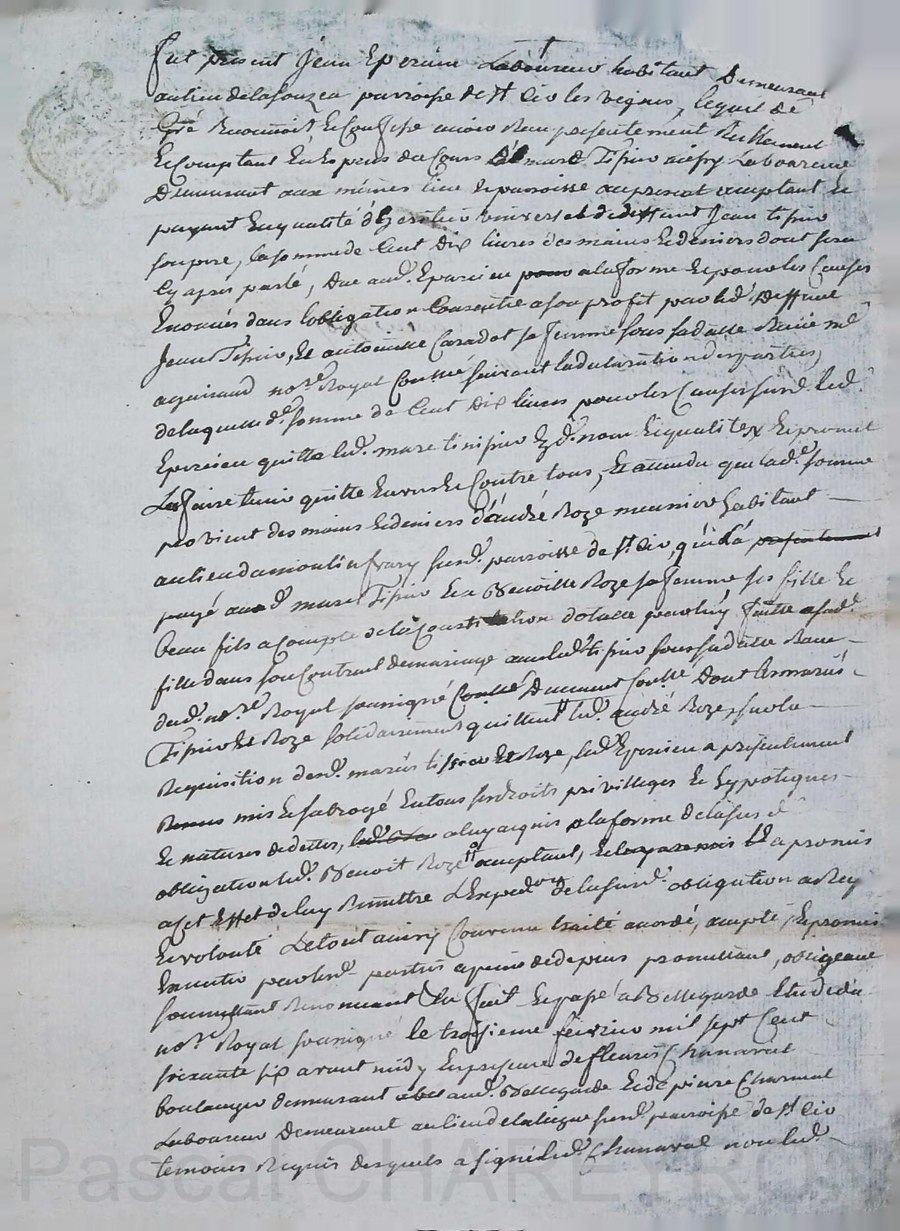 fut present Jean Epercieu Laboureur habitant Demeurant
au lieu de parroisse de St Cir les vignes, lequel de
Gré Reconnoit Et Confesse avoir Reçu presentement Reellement
Et Comptant En Espece du Cours De marc Tisseur aussy Laboureur
Demeurant aux mêmes lieu Et parroisse au present acceptant Et
payant En qualité d'heretier universel de deffunt Jean tisseur
son pere, la somme de Cent Dix livres des mains Et deniers dont sera
Cy apres parlé, Due aud. Epercieu a la forme Et pour les Causes
Enoncées dans l'obligation Consentie a son profit par led. Deffunt
Jean Tisseur, Et antoinette Caradot sa femme sous sa datte Reçüe me
nore Royal suivant la declaration des parties,
de laquelle de somme de Cent Dix livres pour les Causes surd. led.
Epercieu quitte led. marc tisseur Esd. nom Et qualité Et promet
Le faire tenir quitte Envers Et Contre tous, Et attendu que lade somme
provient des mains Et deniers d'andré Roze meunier habitant
au lieu du moulin surd. parroisse de St Cir, qui l'a presentement
payé aud. marc Tisseur Et a Benoitte Roze sa femme ses fille Et
beau fils a Compte de la Constitution dotalle par luy faitte a sad.
fille dans son Contrat de mariage avec led. tisseur sous sa datte Reçu
dud. nore Royal soussigné Controllé Duement Controllé Dont les mariés
Tisseur Et Roze solidairement quittent led. andré Roze, sur la
Requisition desd. mariés tisseur Et Roze, led. Epercieu a presentement
mis Et subrogé En tous ses droits privilleges Et hypoteques
Et natures de dettes, a luy acquis a la forme de la susde
obligation led. Benoit Roze acceptant, Et a promis
a Cet Effet de luy Remettre L'Expedon de la surd. obligation a
Et volonté Le tout ainsy Convenu traité accordé, accepté, Et promis
Executer par lesd. parties a peine de depens promettant, obligeant
soumettant Renonceant Fait Et passé a Bellegarde Etude du
nore Royal soussigné le troisieme fevrier mil sept Cent
soixante six avant midy En presence de fleuris Chanaval
boulanger demeurant aud. Bellegarde Et de pierre Charmet
Laboureur Demeurant au lieu de surd. parroisse de St Cir
temoins Requis desquels a signé led. Chanaval non led.
Pascal CHAREYRON